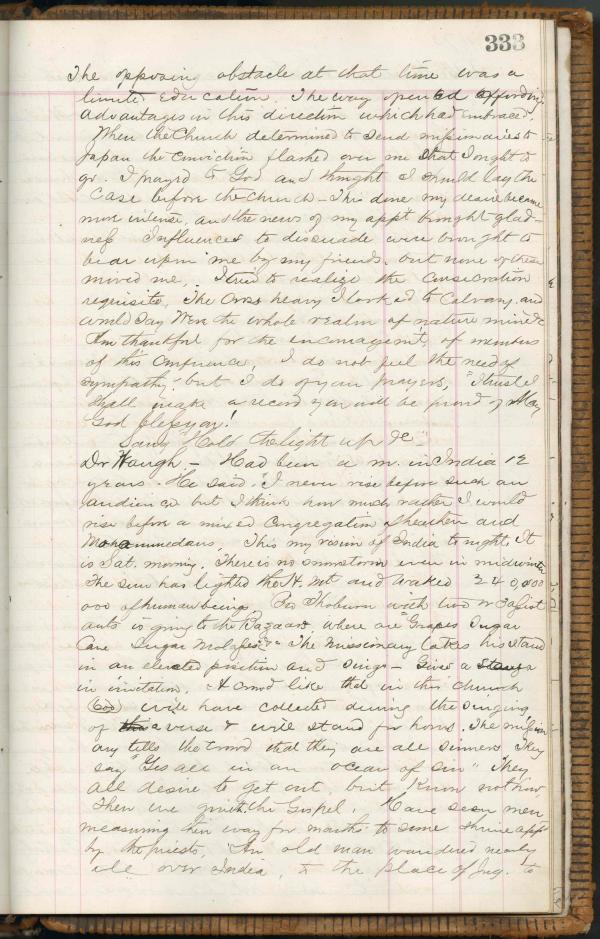 333
The opposing obstacle at that time was a
limited Education. The way opened affording
advantages in this direction which had embraced.
When the Church determined to send missionaries to
Japan the conviction flashed over me that I ought to
go. I prayed to God and thought I should lay the
case before the church - This done my desire became
more intense, and the news of my appt brought glad-
ness Influences to dissuade were brought to
bear upon me by my friends. but none of these
moved me. I tried to realize the consecration
requisite. The Cross heavy I looked to Calvary. and
would say Were the whole realm of nature mine &c
Am thankful for the encouragement, of members
of this Conference, I do not feel the need of
sympathy, but I do of your prayers, I trust I
shall make a record you will be proud of May
God bless you!
Sang "Hold the light up &c"
Dr Waugh. - Had been a m. in India 12
years. He said. "I never rise before such an
audience but I think how much rather I would
rise before a mixed Congregation of heathen and
Mohammedans. This my vision of India tonight. It
is Sat. morning. There is no snowstorm even in midwinter
The sun has lighted the H. Mt and waked 240,000
000 of human beings. Bro Thoburn with two or 3 assist
ants is going to the Bazaars, where are Grapes Sugar
Cane Sugar Molasses &c The Missionary takes his stand
in an elevated position and sings - Gives a
in invitation. A crowd like that in this church
(600) will have collected during the singing
of a verse & will stand for hours. The mission
ary tells the crowd that they are all sinners They
say "Yes all in an ocean of sin" They
all desire to get out, but know not how,
Then we the Gospel. Have seen men
measuring their way for months to some shrine appt
by the priests. An old man wandered nearly
all over India, to the place of Jug. to